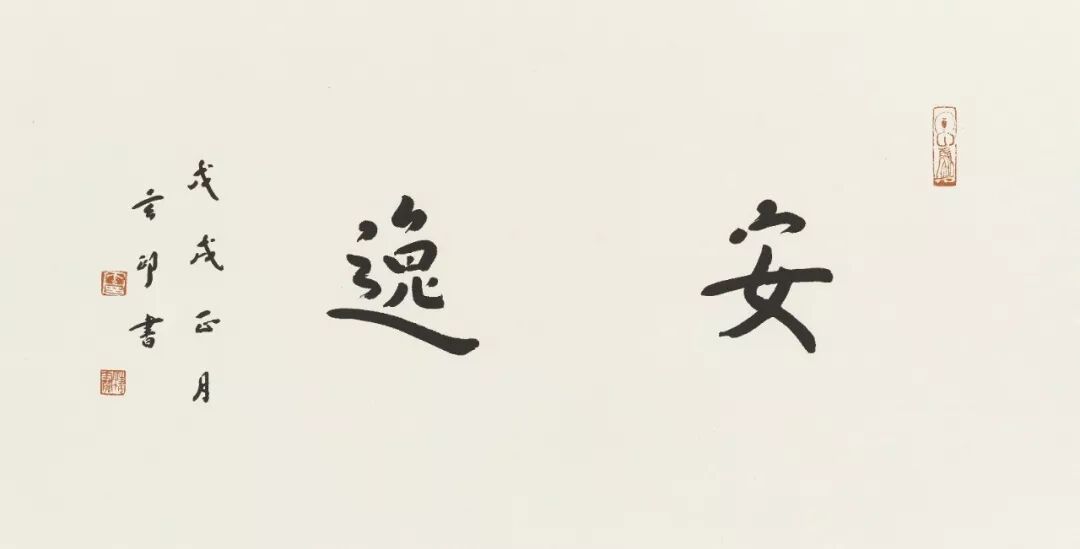 安逸
戊戌正月
言印書